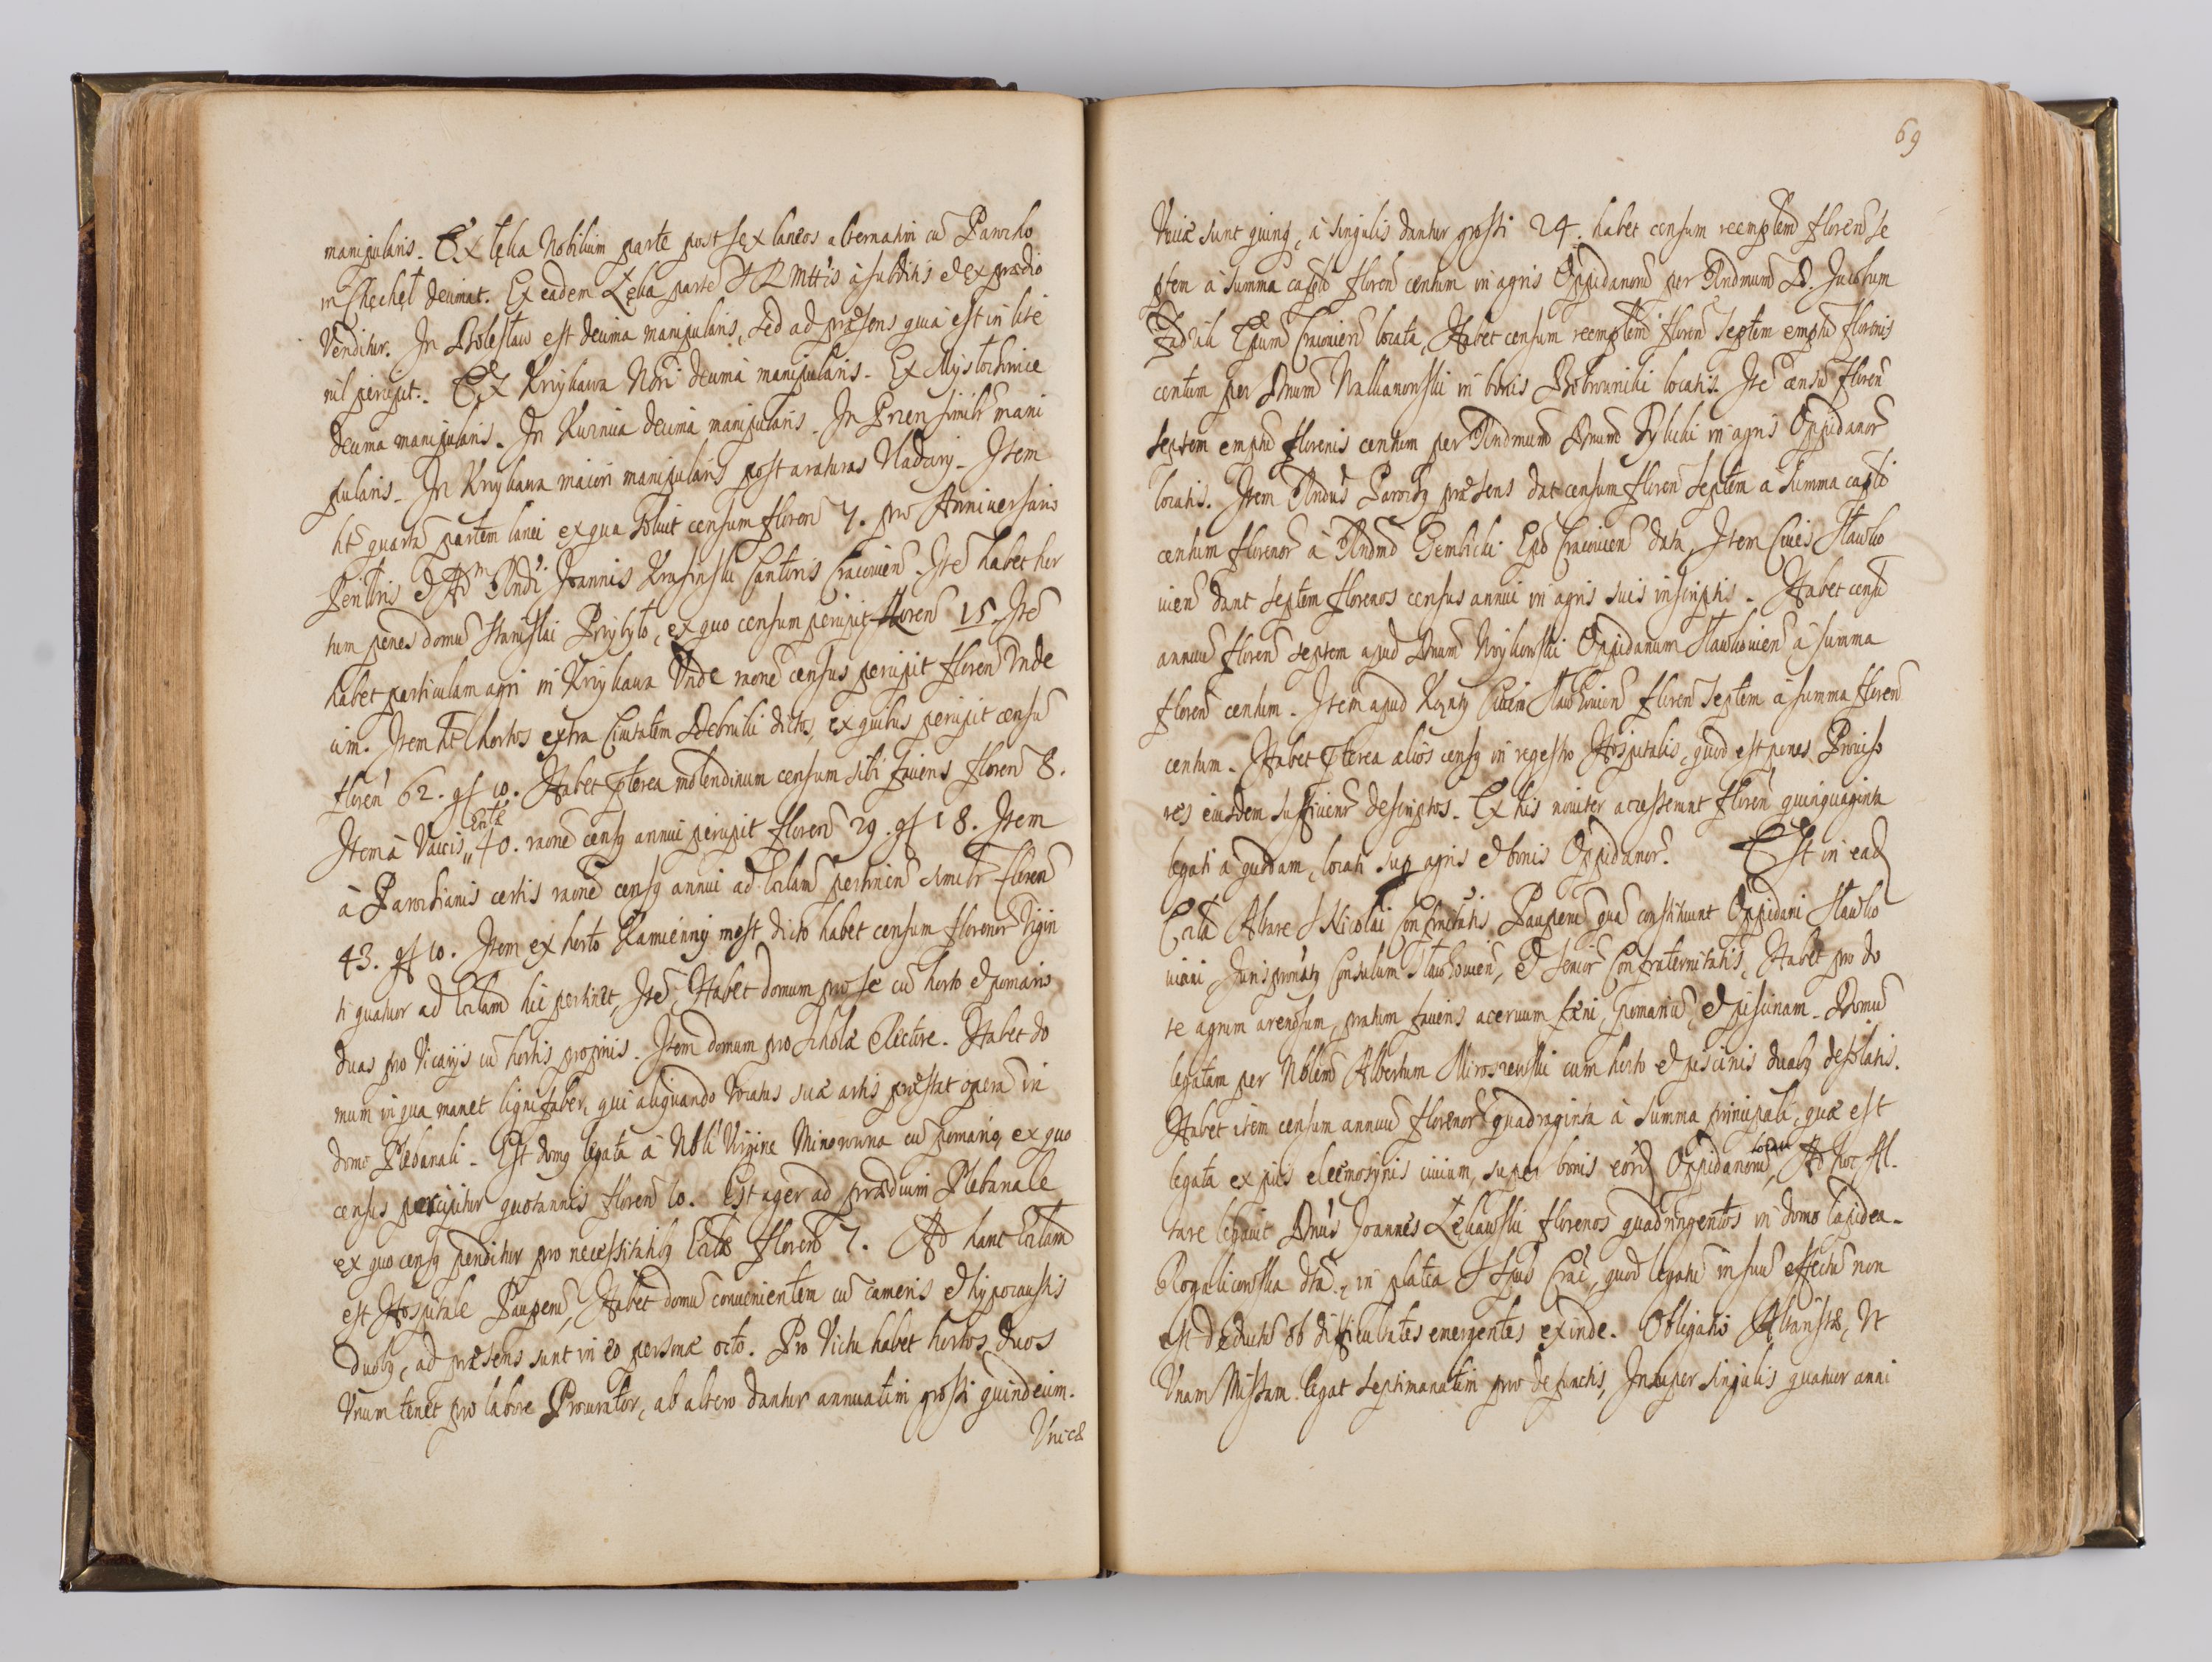 manipularis. Ex Lęka Nobilium parte post sex laneos alternatim cũ Parocho
in Chechel decimat. Ex eadem Lęka parte S R Mttis à subditis et ex prædio
Venditur. In Bolesław est decima manipularis, sed ad præsens quia est in lite
nil percipit. Ex Krzykawa Nõri decima manipularis. Ex Mystochowice
decima manipularis. In Kuznica decima manipularis. In Przen similr mani
pularis. In Krzykawa maiori manipularis post araturas Kladziny. Item
ht quartã partem lanei ex qua soluit censum floren 7. pro Anniversario
Penitoris et Adm Rndi Joannis Krasinski Cantoris Cracouien. Ite habet hor
tum penes domũ Stanislai Przybyło, ex quo censum percipit floren 15. Ite
habet particulam agri in Krzykawa Vnde raone census percipit floren Vnde
cim. Item ht hortos extra Ciuitatem Debniki dictos, ex quibus percipit censũ
floren 62. gs 10. Habet pterea molendinum censum sibi faciens floren 8.
Item à Vaccis Eccl 40. raone censq annui percipit floren 29. gs 18. Item
à Parochianis certis raone censq annui ad Ecclam pertinen similr floren
43. gs 10. Item ex horto Kamienny most dicto habet censum florenor Vigin
ti quatuor ad Ecclam hic pertinet, Ite, Habet domum pro se cũ horto et pomario
duas pro Vicarijs cũ hortis proprijs. Item domum pro schola et lectore. Habet do
mum in qua manet lignifaber, qui aliquando Vocatus suæ artis præstat operã in
domo Plebanali. Est domq legata à Nbli Virgine Minorowna cũ pomario, ex quo
census percipitur quotannis floren 10. Est ager ad prædium Plebanale
ex quo censq penditur pro necessitatibq Ecclæ floren 7. Ad hanc Ecclam
est Hospitale Pauperũ, Habet domũ conuenientem cũ cameris et hypocaustis
duobq, ad præsens sunt in eo personæ octo. Pro Victu habet hortos duos
Vnum tenet pro labore Procurator, ab altero dantur annuatim grossi quindecim.
Vaccæ
69
Vaccæ sunt quinq, à singulis dantur grossi 24. habet censum reemptlem floren se
ptem à summa captli floren centum in agris Oppidanorũ per Rndmum D. Jacobum
Zadzik Epum Cracouien locata, Habet censum reemptlem floren septem emptũ florenis
centum per Dnum Wallianowski in bonis Bobrowniki locatis. Ite censũ floren
septem emptũ florenis centum per Rndmum Dnum Rylicki in agris Oppidanor
locatis. Item Rndus Parochq præsens dat censum floren septem à summa captli
centum florenor à Rndmo Gembicki Epo Cracouien data, Item Ciues Sławko
uien dant septem florenos census annui in agris suis inscriptis. Habet censũ
annuũ floren septem apud Dnum Wrykowski Oppidanum Sławkouien à summa
floren centum. Item apud Kępty Ciuem Sławkouien floren septem à summa floren
centum. Habet pterea alios censq in regestro Hospitalis, quod est penes Prouiso
res eiusdem sufficienr descriptos. Ex his nouiter accesserunt floren quinquaginta
legati à quodam, locati sup agris et bonis Oppidanor. Est in ead
Eccla Altare S Nicolai Confrãtis Pauperũ quã constituunt Oppidani Sławko
uiani, Juris pronatq Consulum Sławkouien, et senior Confraternitatis, Habet pro do
te agrum arenosum, pratum faciens aceruum fæni, pomariũ, et piscinam. Domũ
legatam per Nblem Albertum Miroszewski cum horto et piscinis duabq desolatis.
Habet item censum annuũ florenor quadraginta à summa principali, quæ est
legata ex pijs eleemosynis ciuium, super bonis eord Oppidanorũ locata, Ad hoc Al.
tare legauit Dnus Joannes Łękawski florenos quadringentos in domo lapidea
Rogalicowska dta, in platea S Spus Crac, quod legatũ in suũ effectũ non
est deductũ ob difficultates emergentes exinde. Obligatio Altaristæ, Vt
Vnam Missam legat septimanatim pro defunctis, Insuper singulis quatuor anni